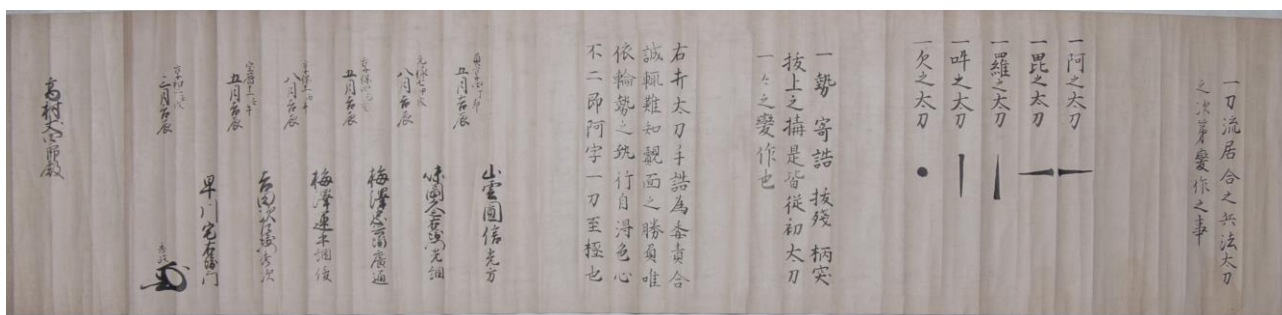 一刀流居合之兵法太刀
之次第變作之事
一阿之太刀
一毘之太刀
一羅之太刀
一吽之太刀
一欠之太刀
一勢 寄詰 抜残 柄突
抜上之搆是皆従初太刀
一々之變作也
右井太刀手詰為委責合
誠輙難知覿面之勝負唯
依輪勢之執行自得色心
不二即阿字一刀至極也
五月吉辰
山雲圓信光方
八月吉辰
五月吉辰
梅澤
廣通
八月吉辰
梅澤連木調俊
五月吉辰
三月吉辰
早川宅右衛門
殿